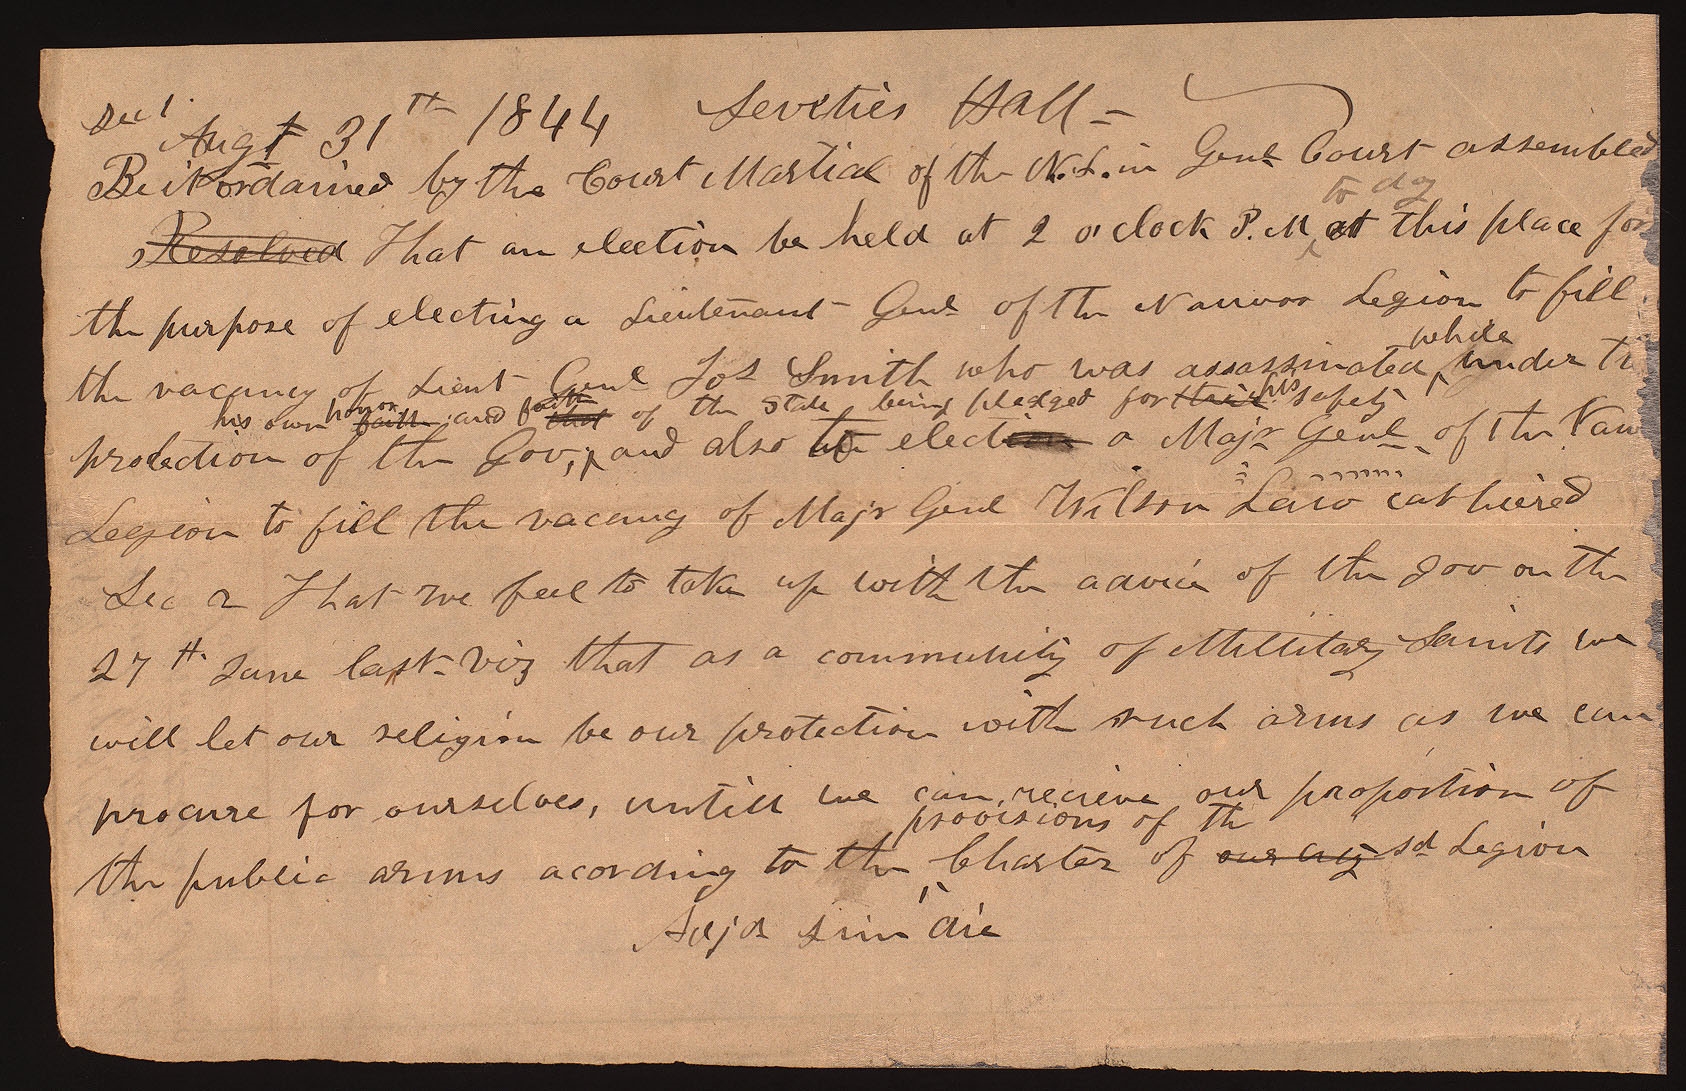 Sec 1
Augt 31th 1844 Seveties Hall –
Be it ordained by the Court Martial of the N. L. in Genl Court assembled
to day
Resolved That an election be held at 2 o'clock P. M at this place for
the purpose of electing a Lieutenant Genl of the Nauvoo Legion to fill
while
the vacancy of Lieut Genl Jos Smith who was assassinated under the
his own honor faith and faith that of the State being pledged for their his safety
protection of the Gov, and also to election a Majr Genl of the Nau
Legion to fill the vacancy of Majr Genl Wilson Law cashiered
Sec 2 That we feel to take up with the advice of the Gov on the
27th June last viz that as a community of Millitary Saints we
will let our religion be our protection with such arms as we can
procure for ourselves, untill we can recieve our proportion of
provisions of the
the public arms acording to the Charter of our city sd Legion
Adjd sine die